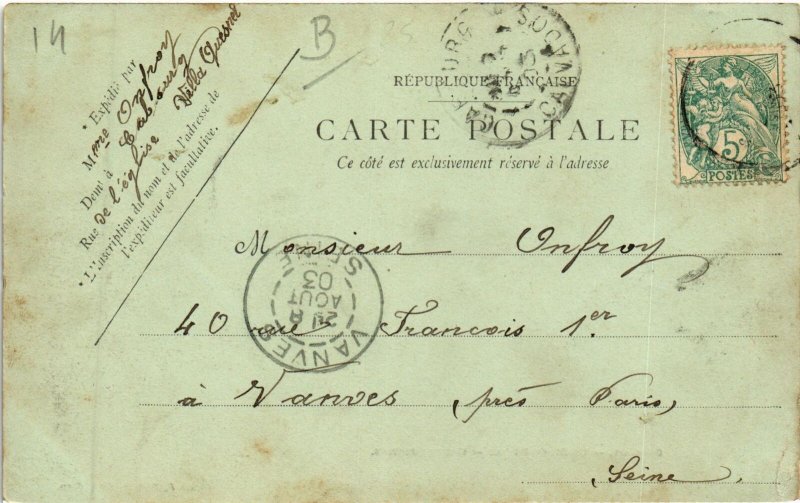 14
B
* Expédié par
Mme Onfroy
Demt à Cabourg Villa Quesnel
Rue de l'église
* L'Inscription du nom et de l'adresse de
l'expéditeur est facultative.
CABOURG CALVADOS
RÉPUBLIQUE FRANÇAISE
CARTE POSTALE
Ce côté est exclusivement réservé à l'adresse
5c
POSTES
Monsieur Onfroy
40 rue François 1er
à Vanves, près Paris,
Seine.
VANVES
AOUT
03
SEINE